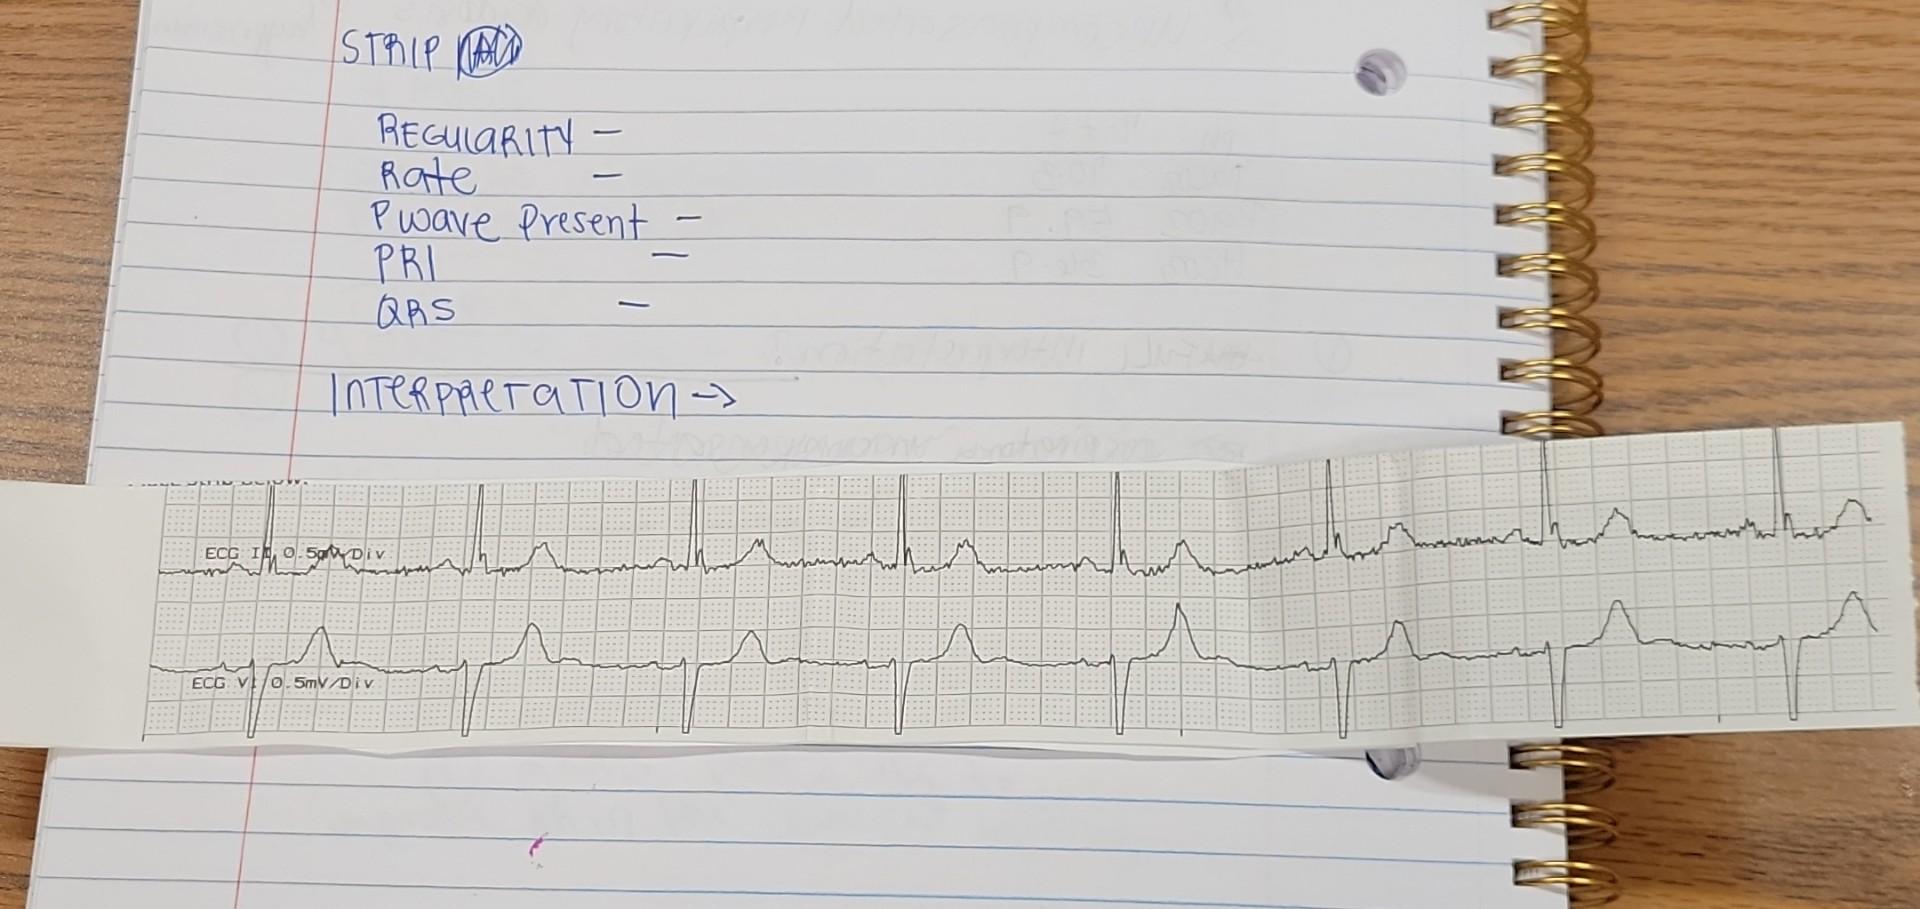 STRIP
REGULARITY —
Rate —
P wave Present —
PRI —
QRS —
INTERPRETATION →
ECG II 0.5mV/Div
ECG V 0.5mV/Div